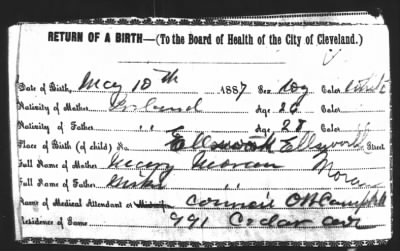 RETURN OF A BIRTH—(To the Board of Health of the City of Cleveland.)
Date of Birth, May 10th 1887 Sex Boy Color White
Nativity of Mother Ireland Age 26 Color
Nativity of Father " Age 28 Color
Place of Birth (of child) No. Ellsworth Street
Full Name of Mother Mary Moran
Full Name of Father Moran
Name of Medical Attendant or Midwife Campbell
Residence of Same 991 Cedar Ave